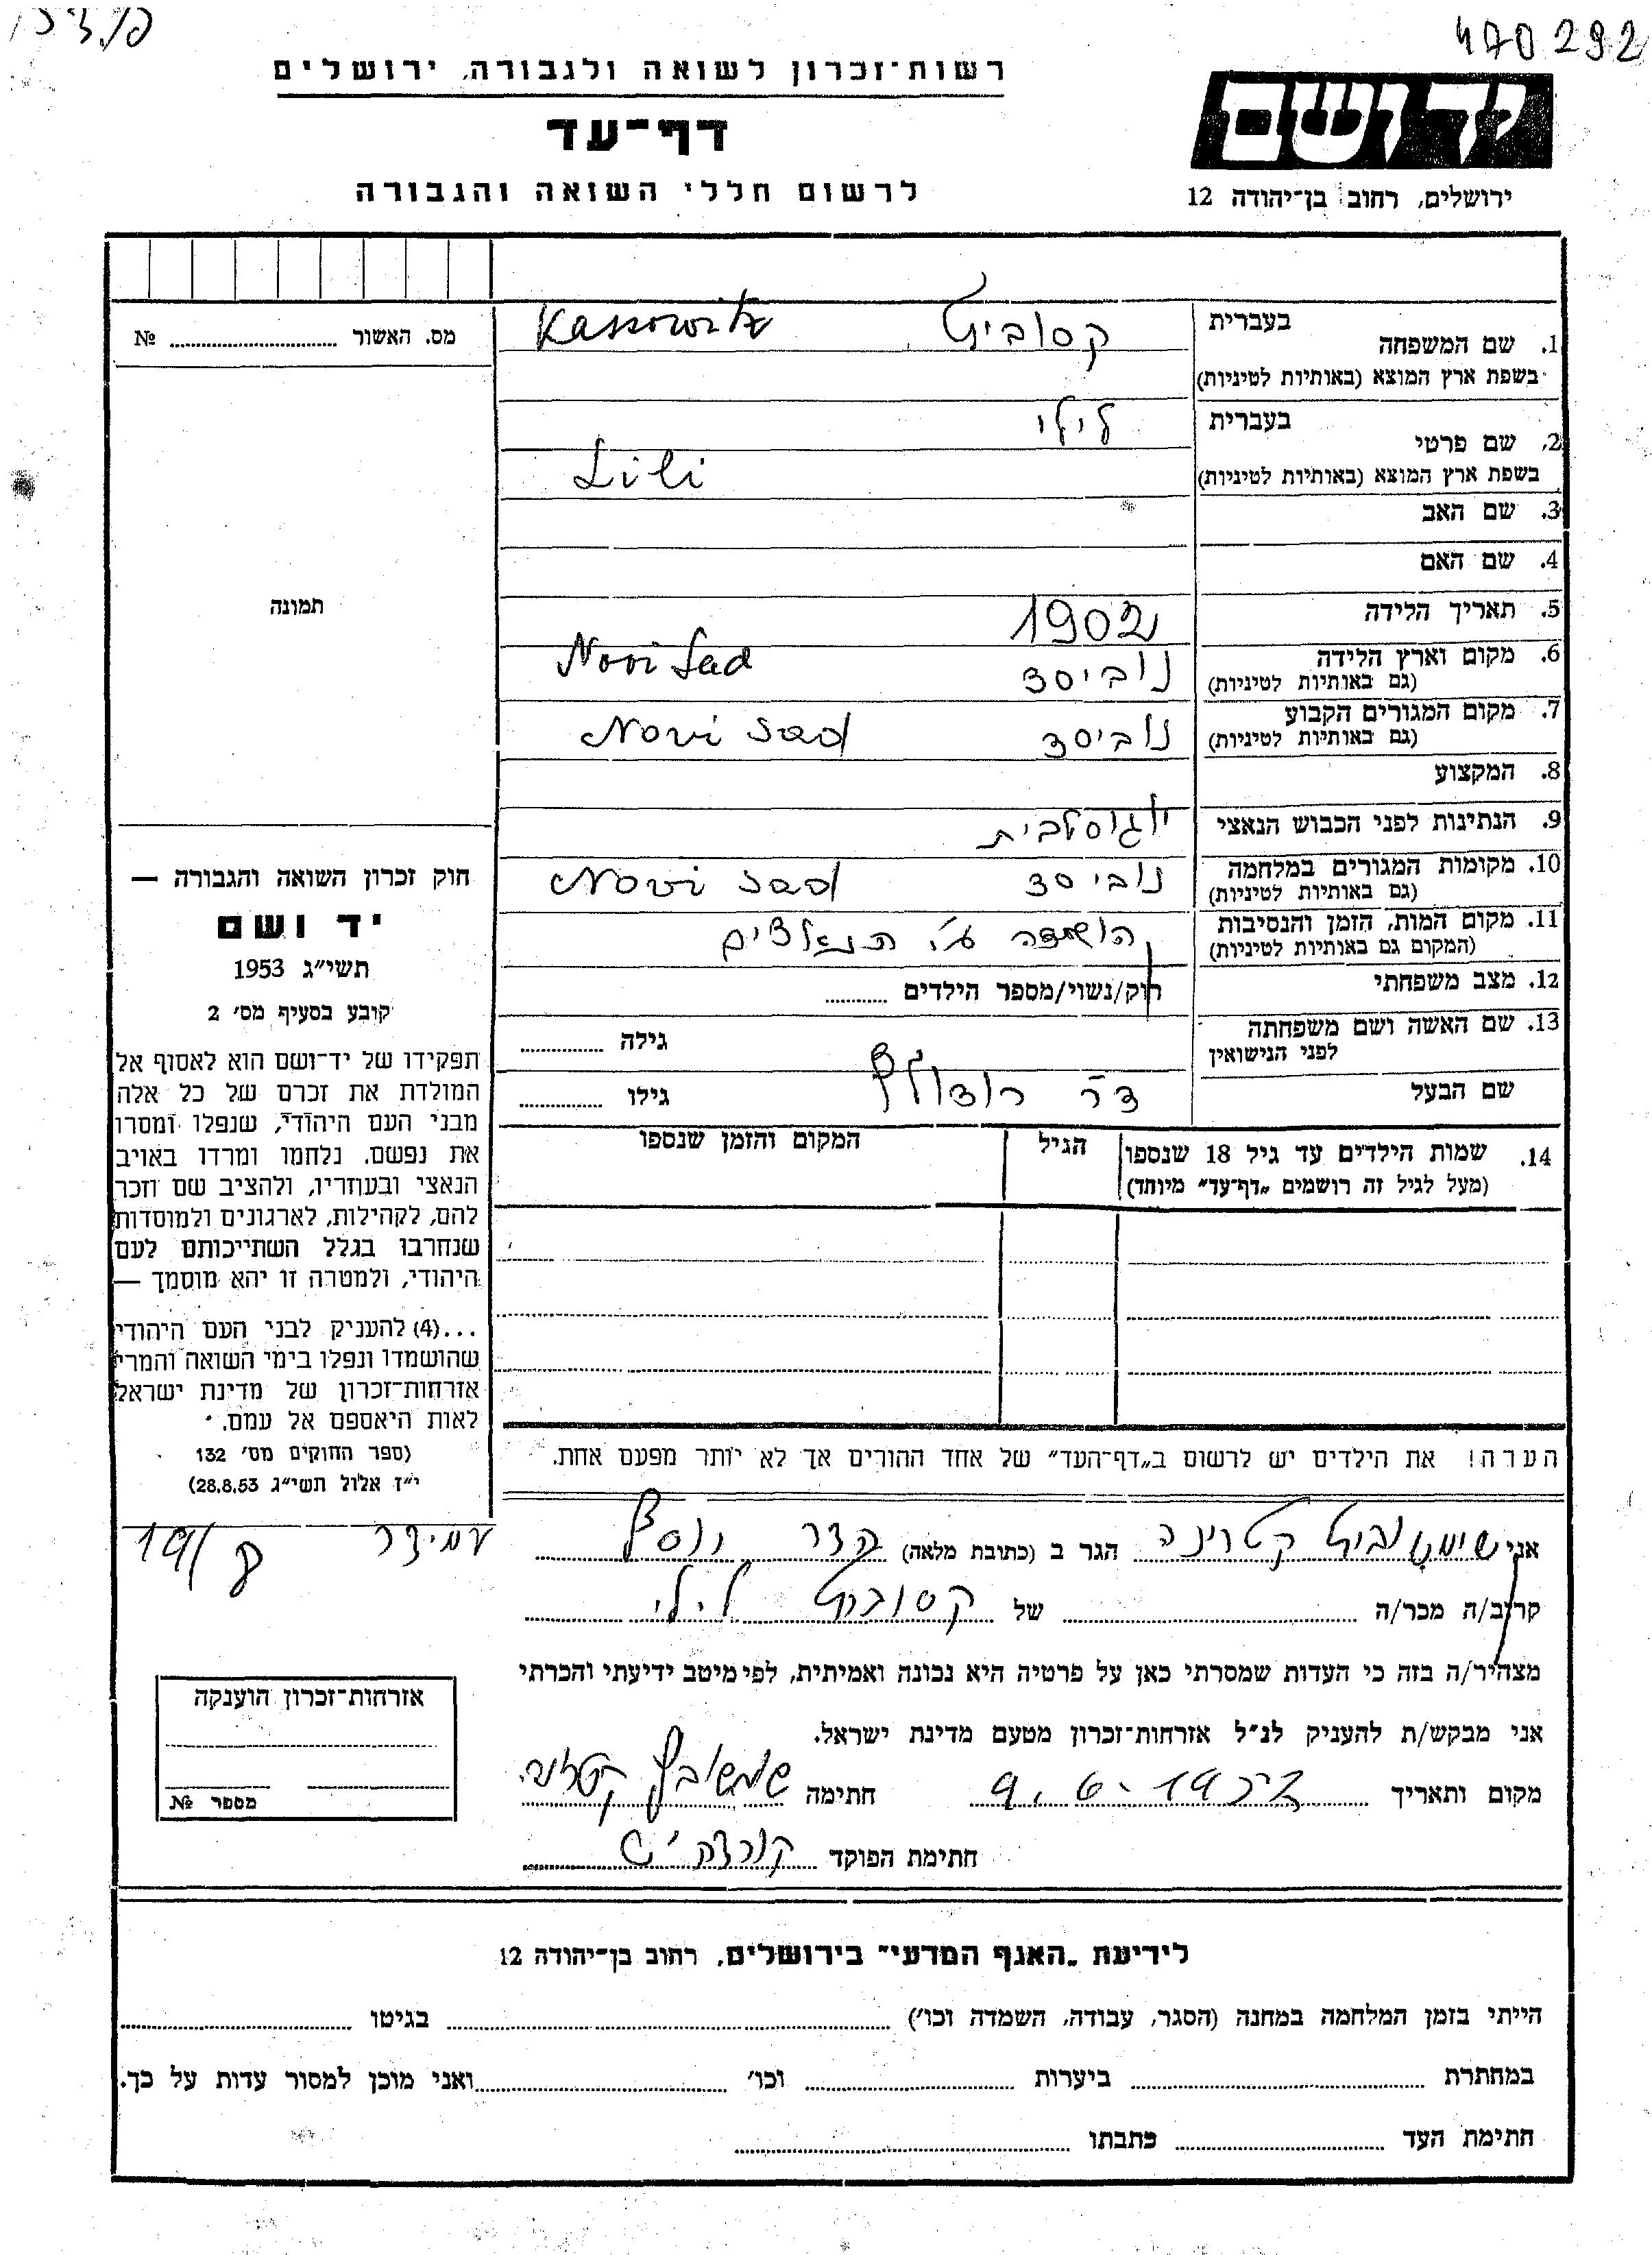 470292
רשות־זכרון לשואה ולגבורה, ירושלים
יד ושם
דף־עד
לרשום חללי השואה והגבורה
ירושלים, רחוב בן־יהודה 12
1. שם המשפחה
בעברית
קסוביץ Kassowitz
בשפת ארץ המוצא (באותיות לטיניות)
2. שם פרטי
בעברית
לילי
בשפת ארץ המוצא (באותיות לטיניות)
Lili
3. שם האב
4. שם האם
5. תאריך הלידה 1902
6. מקום וארץ הלידה
(גם באותיות לטיניות)
נוביסד Novi Sad
7. מקום המגורים הקבוע
(גם באותיות לטיניות)
נוביסד Novi Sad
8. המקצוע
9. הנתינות לפני הכבוש הנאצי יוגוסלבית
10. מקומות המגורים במלחמה
(גם באותיות לטיניות)
נוביסד Novi Sad
11. מקום המות, הזמן והנסיבות
(המקום גם באותיות לטיניות)
הושמדה ע"י הנאצים
12. מצב משפחתי רוק/נשוי/מספר הילדים ..........
13. שם האשה ושם משפחתה
לפני הנישואין
גילה ..........
שם הבעל ד"ר רודולף גילו ..........
14. שמות הילדים עד גיל 18 שנספו
(מעל לגיל זה רושמים „דף־עד" מיוחד)
הגיל
המקום והזמן שנספו
הערה! את הילדים יש לרשום ב„דף־העד" של אחד ההורים אך לא יותר מפעם אחת.
מס. האשור .......... №
תמונה
חוק זכרון השואה והגבורה —
יד ושם
תשי"ג 1953
קובע בסעיף מס' 2
תפקידו של יד־ושם הוא לאסוף אל
המולדת את זכרם של כל אלה
מבני העם היהודי, שנפלו ומסרו
את נפשם, נלחמו ומרדו באויב
הנאצי ובעוזריו, ולהציב שם וזכר
להם, לקהילות, לארגונים ולמוסדות
שנחרבו בגלל השתייכותם לעם
היהודי, ולמטרה זו יהא מוסמך —
...(4) להעניק לבני העם היהודי
שהושמדו ונפלו בימי השואה והמרי
אזרחות־זכרון של מדינת ישראל
לאות היאספם אל עמם.
(ספר החוקים מס' 132
י"ז אלול תשי"ג 28.8.53)
אני קטרינה הגר ב (כתובת מלאה) הדר יוסף עמידר
קרוב/ה מכר/ה .......... של קסוביץ לילי
מצהיר/ה בזה כי העדות שמסרתי כאן על פרטיה היא נכונה ואמיתית, לפי מיטב ידיעתי והכרתי
אני מבקש/ת להעניק לנ"ל אזרחות־זכרון מטעם מדינת ישראל.
מקום ותאריך חתימה
חתימת הפוקד
אזרחות־זכרון הוענקה
מספר №
לידיעת „האגף המדעי" בירושלים, רחוב בן־יהודה 12
הייתי בזמן המלחמה במחנה (הסגר, עבודה, השמדה וכו') .......... בגיטו ..........
במחתרת .......... ביערות .......... וכו' .......... ואני מוכן למסור עדות על כך.
חתימת העד .......... כתבתו ..........